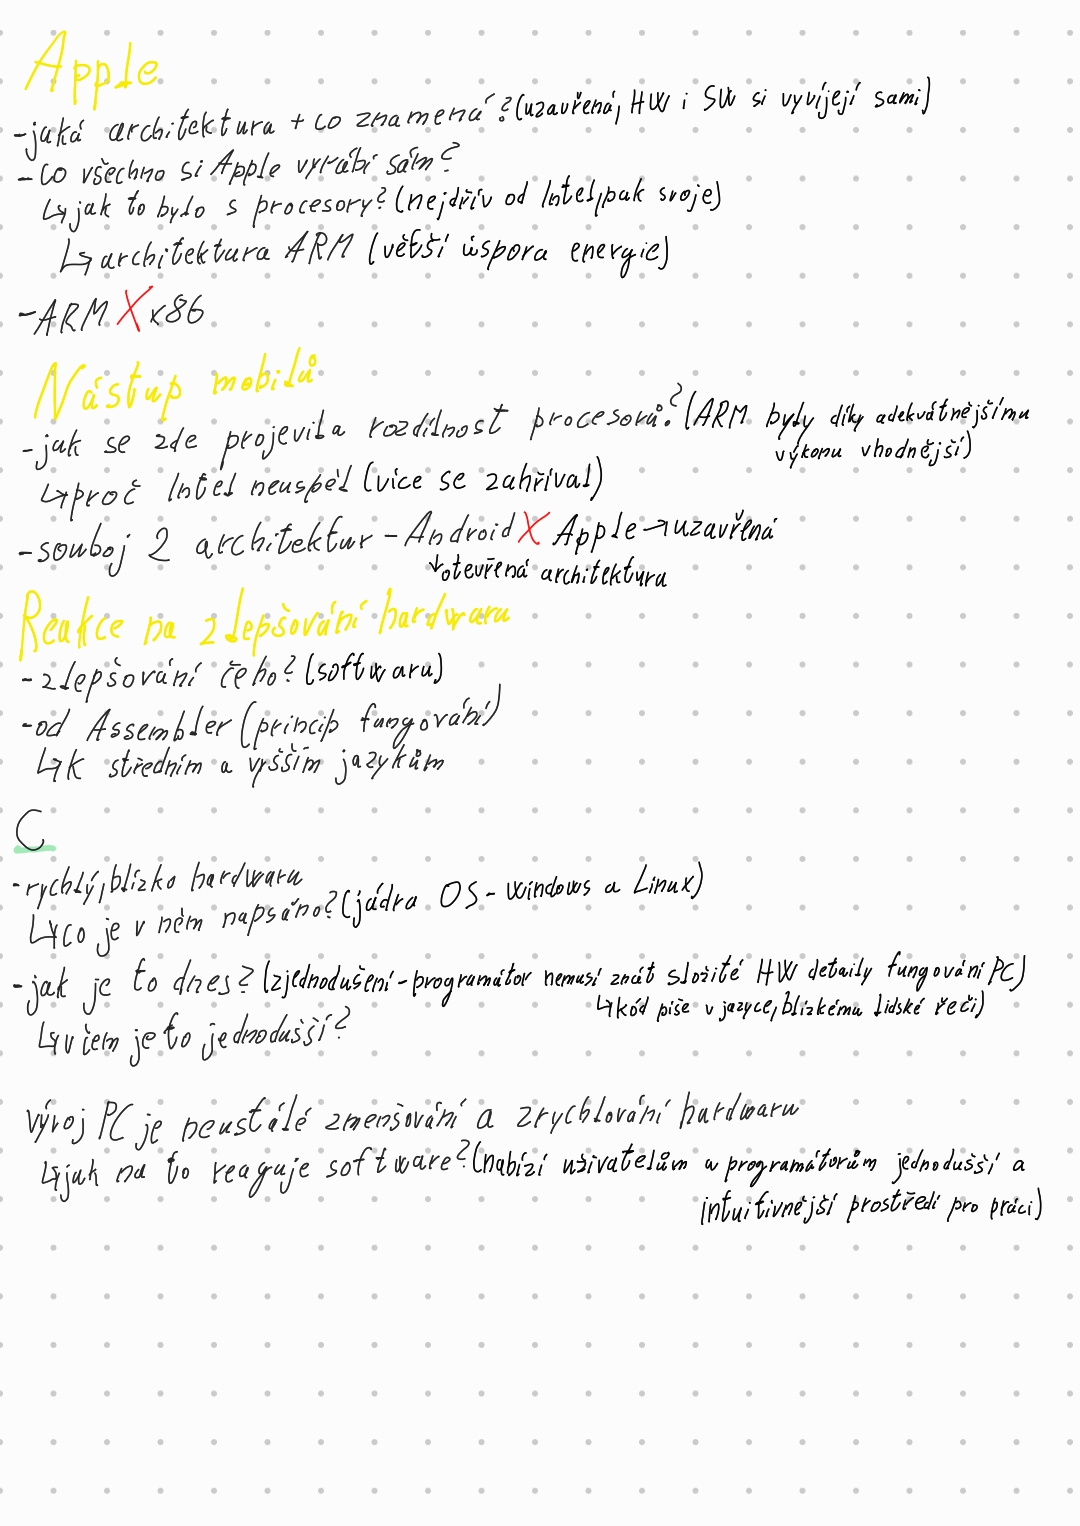 Apple
-jaká architektura + co znamená?(uzavřená, HW i SW si vyvíjejí sami)
-co všechno si Apple vyrábí sám?
↳jak to bylo s procesory?(nejdřív od Intel,pak svoje)
↳architektura ARM (větší úspora energie)
-ARM X x86
Nástup mobilů
-jak se zde projevila rozdílnost procesorů?(ARM byly díky adekvátnějšímu
výkonu vhodnější)
↳proč Intel neuspěl (více se zahříval)
-souboj 2 architektur-Android X Apple→uzavřená
↓otevřená architektura
Reakce na zlepšování hardwaru
-zlepšování čeho?(softwaru)
-od Assembler (princip fungování)
↳k středním a vyšším jazykům
C
-rychlý,blízko hardwaru
↳co je v něm napsáno?(jádra OS-Windows a Linux)
-jak je to dnes?(zjednodušení-programátor nemusí znát složité HW detaily fungování PC)
↳kód píše v jazyce,blízkému lidské řeči)
↳v čem je to jednodušší?
vývoj PC je neustálé zmenšování a zrychlování hardwaru
↳jak na to reaguje software?(nabízí uživatelům a programátorům jednodušší a
intuitivnější prostředí pro práci)